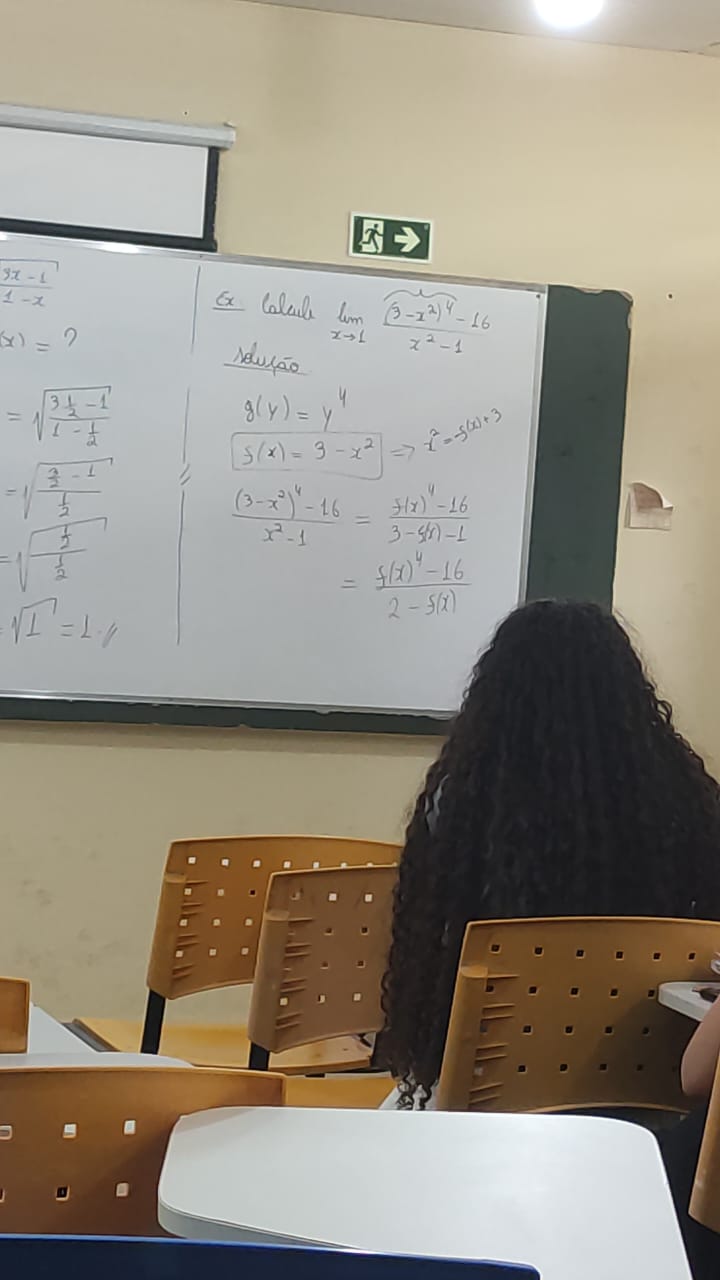 3x-1
1-x
(x) = ?
= √(3 1/2 - 1)/(1 - 1/2)
= √(3/2 - 1)/(1/2)
= √(1/2)/(1/2)
= √1 = 1.//
Ex Calcule lim x→1 ((3-x²)⁴-16)/(x²-1)
solução
g(y) = y⁴
f(x) = 3-x² ⇒ x² = -f(x)+3
((3-x²)⁴-16)/(x²-1) = (f(x)⁴-16)/(3-f(x)-1)
= (f(x)⁴-16)/(2-f(x))